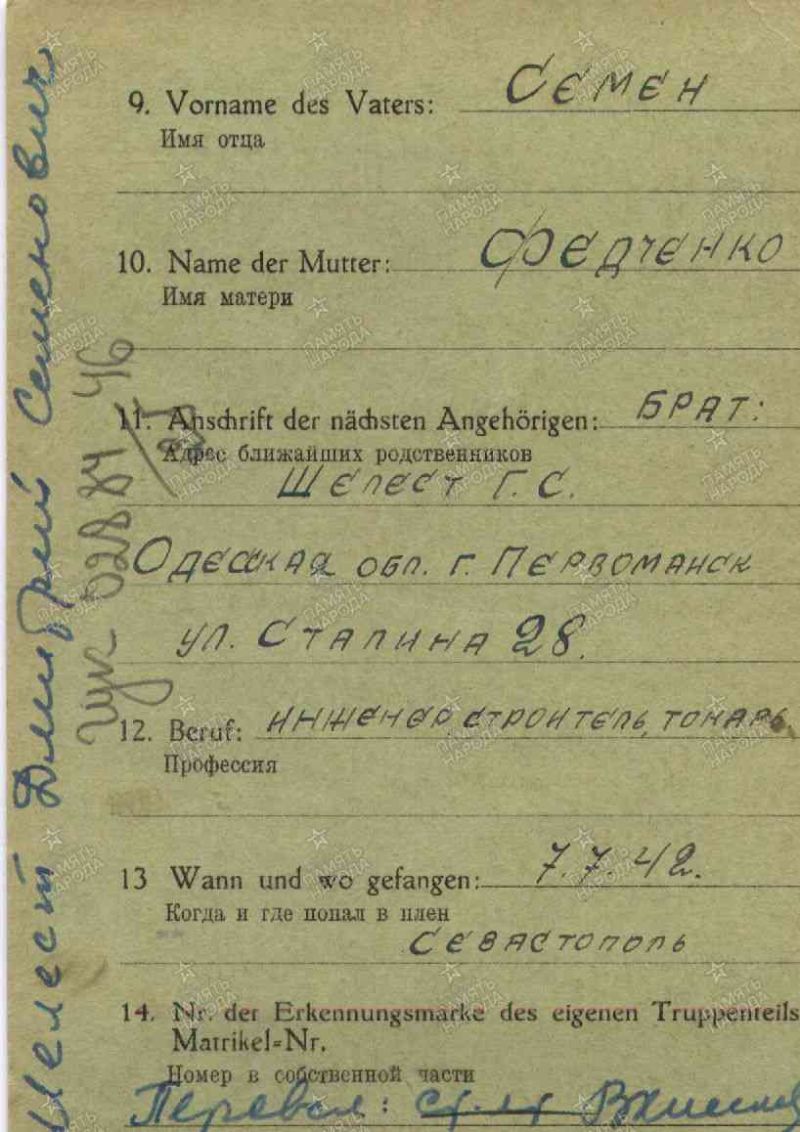 9. Vorname des Vaters: Семен
Имя отца
10. Name der Mutter: Федченко
Имя матери
11. Anschrift der nächsten Angehörigen: БРАТ:
Адрес ближайших родственников
Шелест Г. С.
Одесская обл. г. Первомайск
ул. Сталина 28.
12. Beruf: инженер, строитель, токарь.
Профессия
13 Wann und wo gefangen: 7.7.42.
Когда и где попал в плен
СЕВАСТОПОЛЬ
14. Nr. der Erkennungsmarke des eigenen Truppenteils
Matrikel-Nr.
Номер в собственной части
Перевел:
Шелест Дмитрий Семенович
46
ПАМЯТЬ НАРОДА